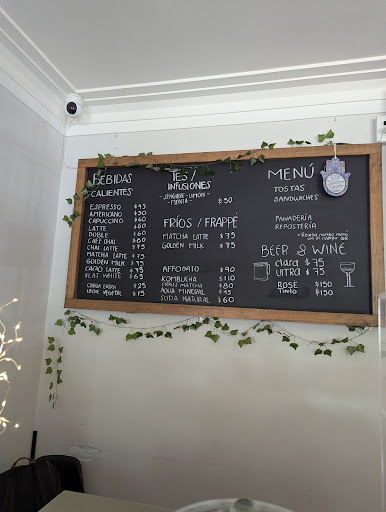 BEBIDAS
CALIENTES
ESPRESSO $45
AMERICANO $50
CAPUCCINO $60
LATTE $60
DOBLE $60
CAFÉ CHAI $60
CHAI LATTE $75
MATCHA LATTE $75
GOLDEN MILK $75
CACAO LATTE $75
FLAT WHITE $65
CARGA EXTRA $25
LECHE VEGETAL $15
TES /
INFUSIONES
- JENGIBRE - LIMON -
- MENTA - $50
FRÍOS / FRAPPE
MATCHA LATTE $75
GOLDEN MILK $75
AFFOGATO $90
KOMBUCHA $110
MATCHA $80
AGUA MINERAL $45
SODA NATURAL $60
MENÚ
TOSTAS
SANDWICHES
PANADERÍA
REPOSTERÍA
BEER & WINE
clara $75
ULTRA $75
ROSÉ $150
Tinto $150